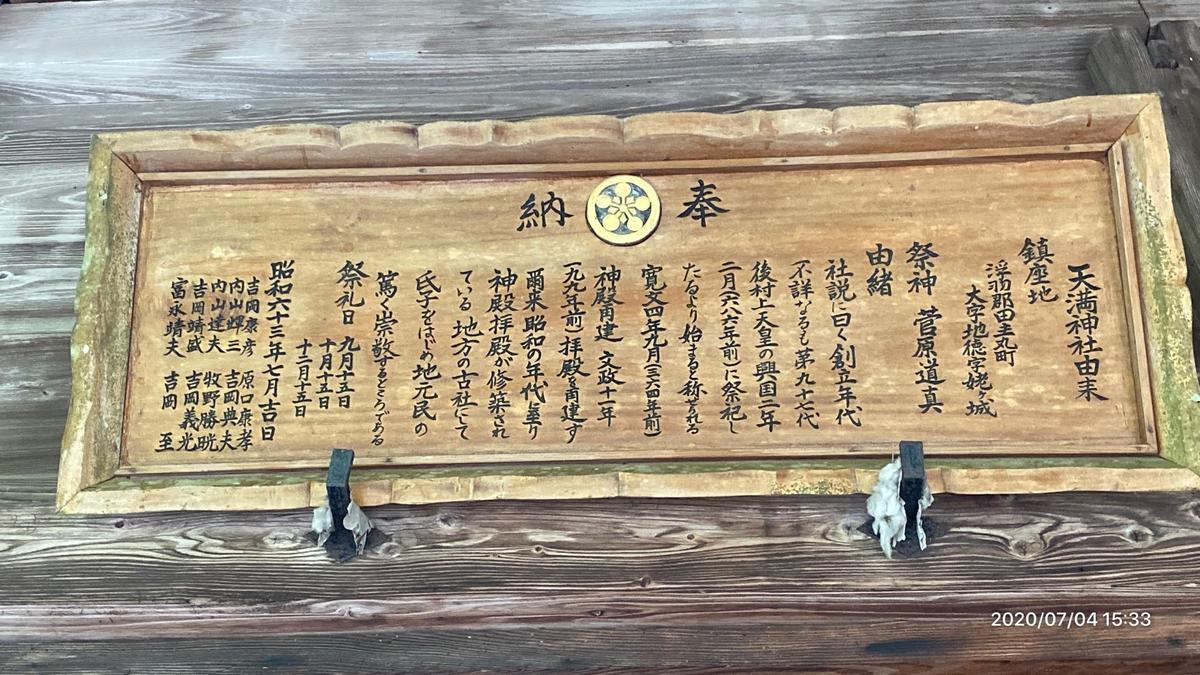 奉納
天満神社由来
鎮座地
浮羽郡田主丸町
大字地徳字姥ヶ城
祭神 菅原道真
由緒
社説に曰く創立年代
不詳なるも第九十七代
後村上天皇の興国二年
二月(六六六年前)に祭祀し
たるより始まると称せられる
寛文四年九月(三六四年前)
神殿再建 文政十一年
(一九九年前)拝殿を再建す
爾来昭和の年代に至り
神殿拝殿が修築され
ている 地方の古社にて
氏子をはじめ地元民の
篤く崇敬するところである
祭礼日 九月十五日
十月十五日
十二月十五日
昭和六十三年七月吉日
吉岡康彦 原口康孝
内山輝三 吉岡典夫
内山達夫 牧野勝晄
吉岡靖盛 吉岡義光
富永靖夫 吉岡 至
2020/07/04 15:33